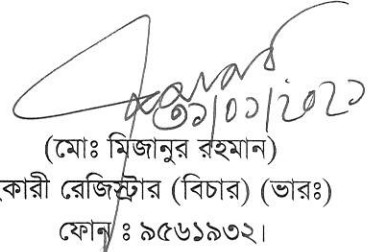 ৩১/০১/২০২১
(মোঃ মিজানুর রহমান)
কারী রেজিস্ট্রার (বিচার) (ভারঃ)
ফোন ঃ ৯৫৬১৯৩২।